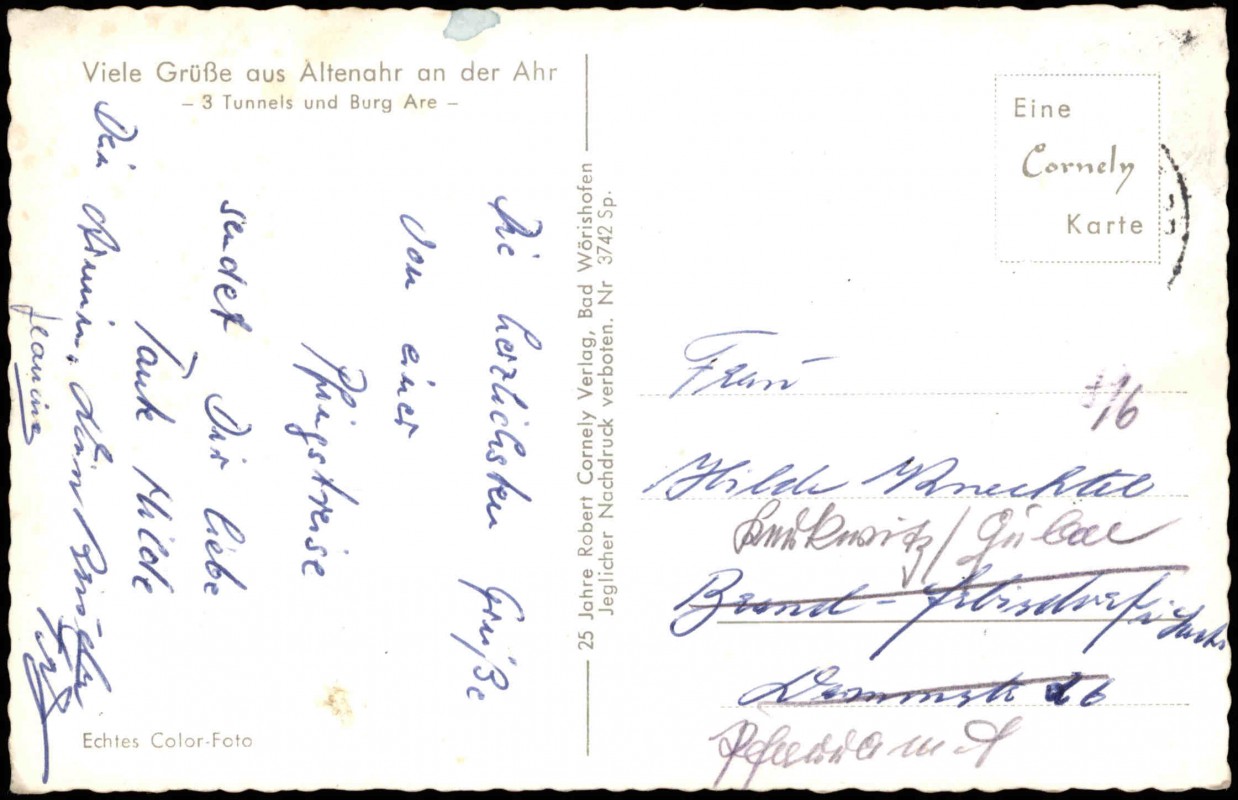 Viele Grüße aus Altenahr an der Ahr
– 3 Tunnels und Burg Are –
Die herzlichsten Grüße
von einer
Pfingstreise
sendet Dir liebe
Tante Hilde
Dein Armin. Dein Bruder
Jeanine
Echtes Color-Foto
25 Jahre Robert Cornely Verlag, Bad Wörishofen
Jeglicher Nachdruck verboten. Nr 3742 Sp.
Eine
Cornely
Karte
Frau
Hilde Knechtel
Brand-Erbisdorf i/Sachs
26
Pfarramt